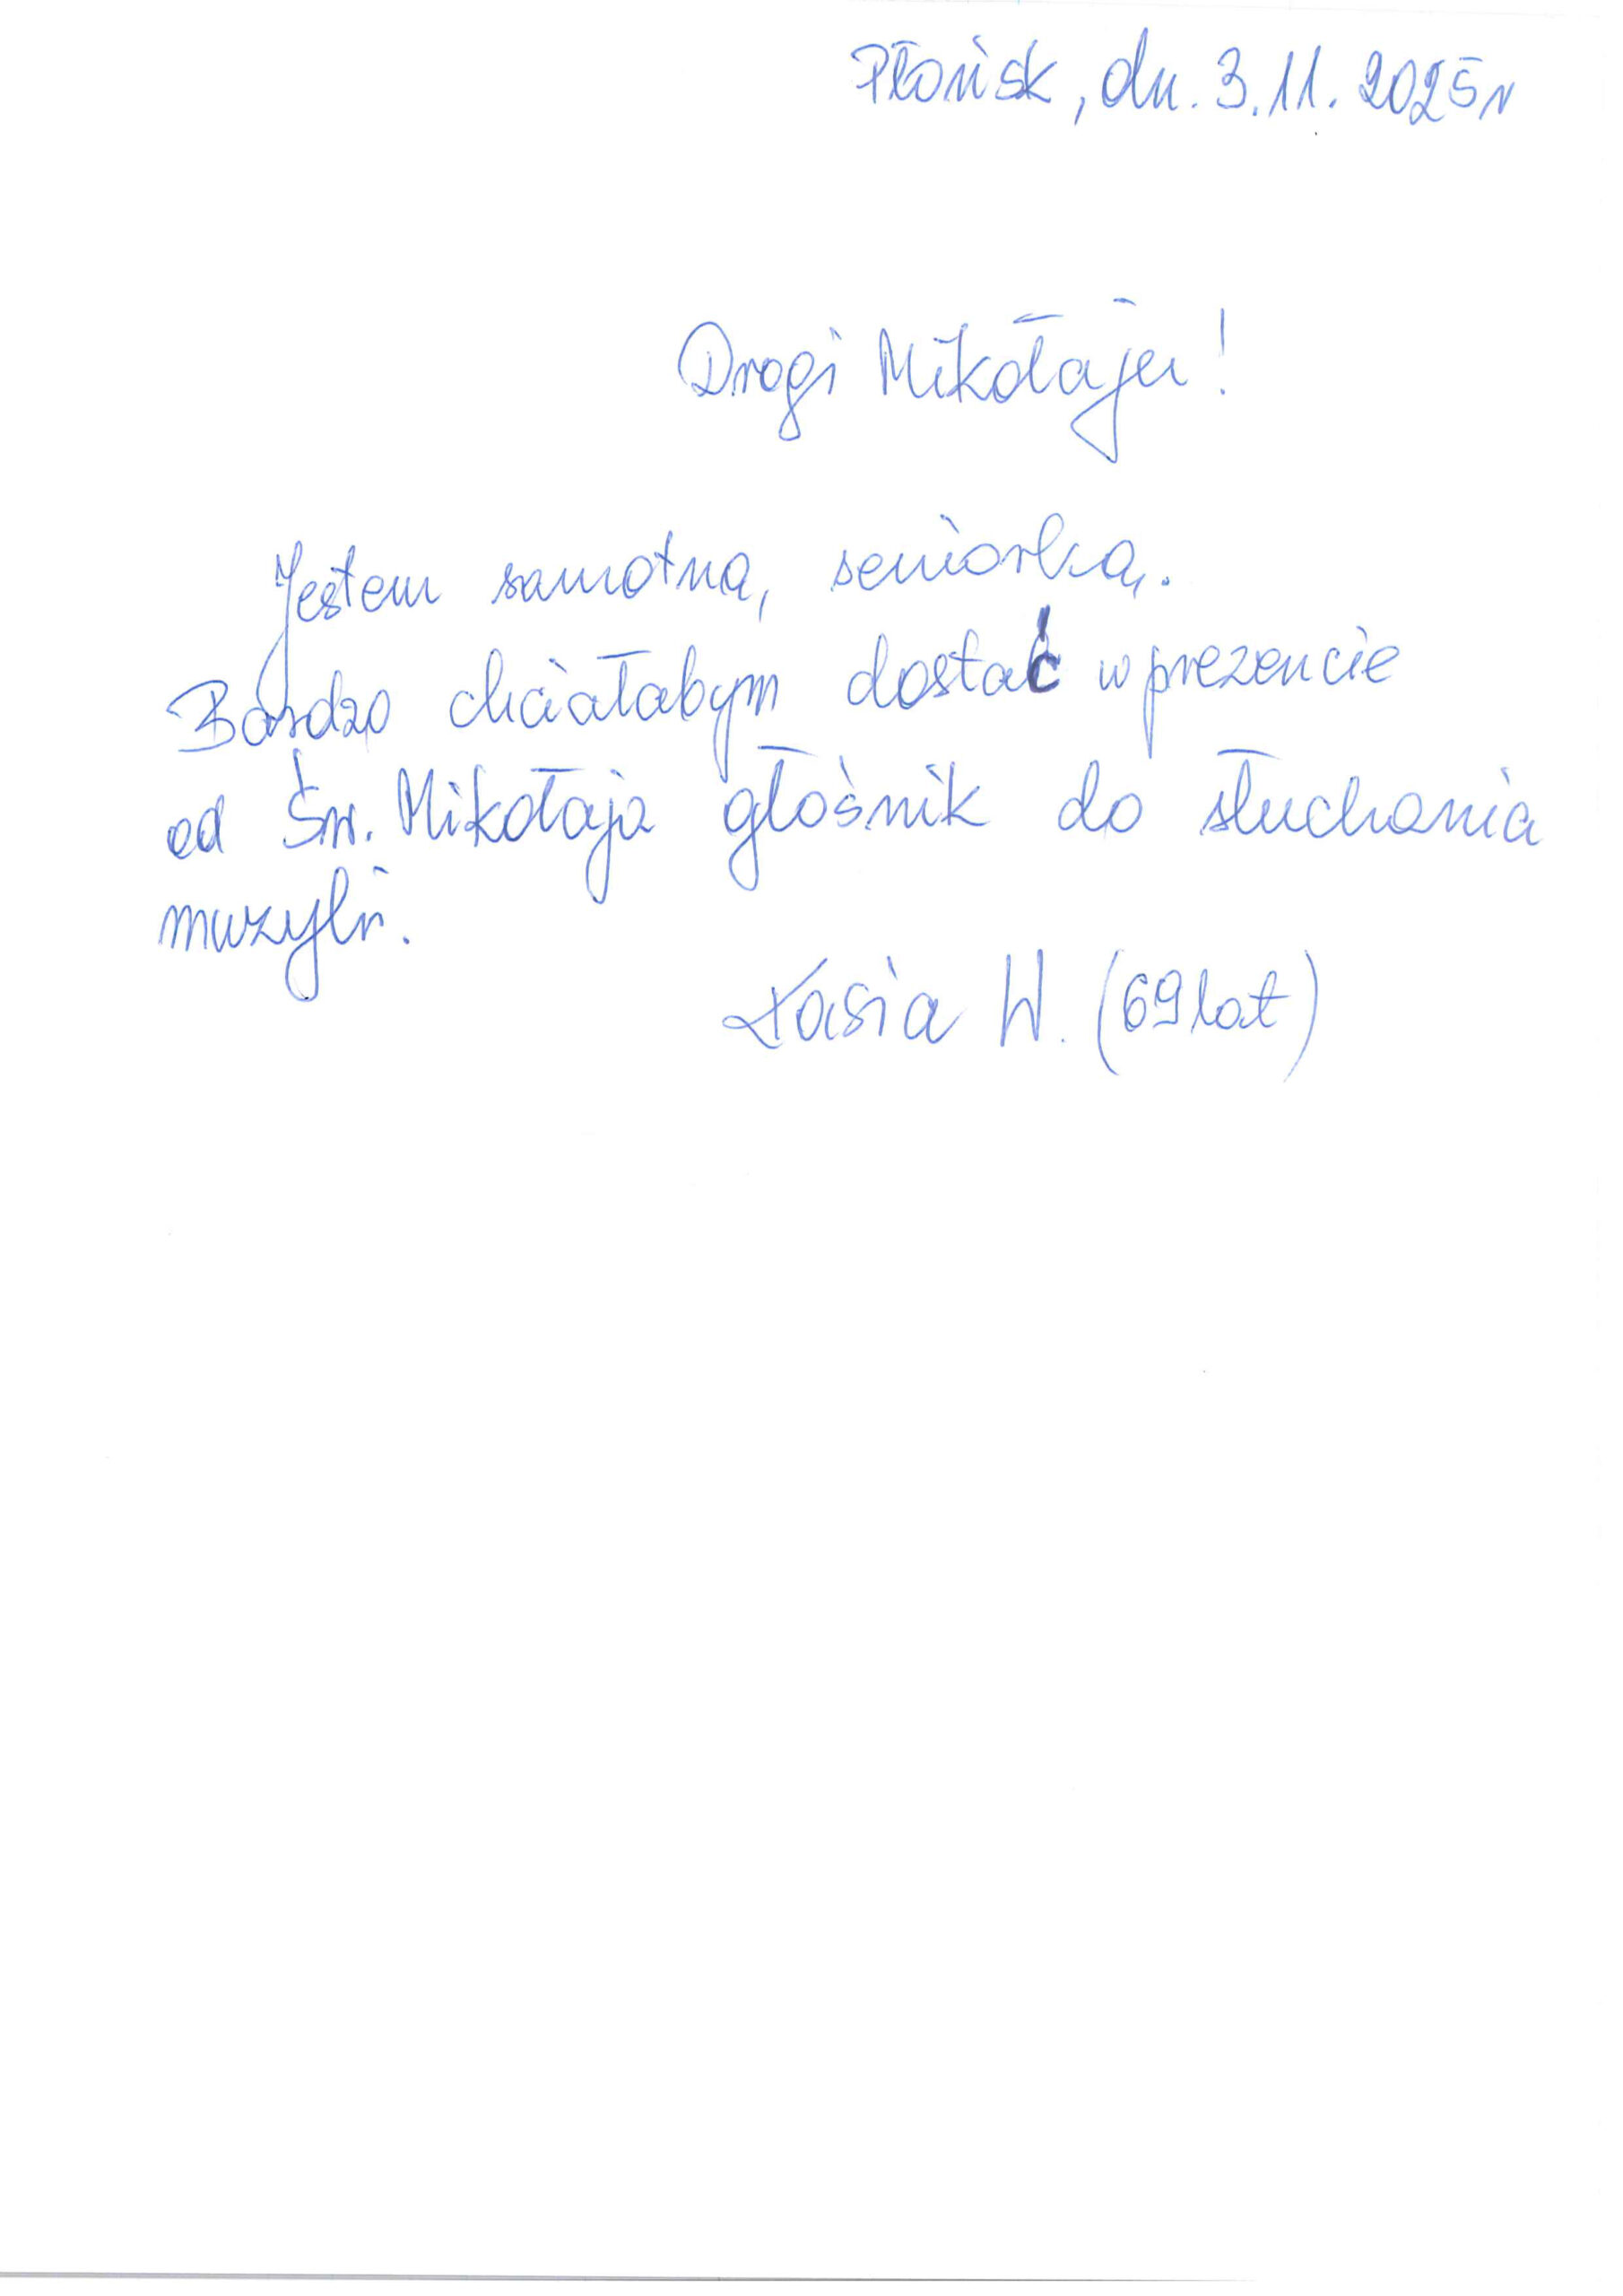 Płońsk, dn. 3.11.2025r
Drogi Mikołaju!
Jestem samotną, seniorką.
Bardzo chciałabym dostać w prezencie
od Św. Mikołaja głośnik do słuchania
muzyki.
Kasia W. (69 lat)